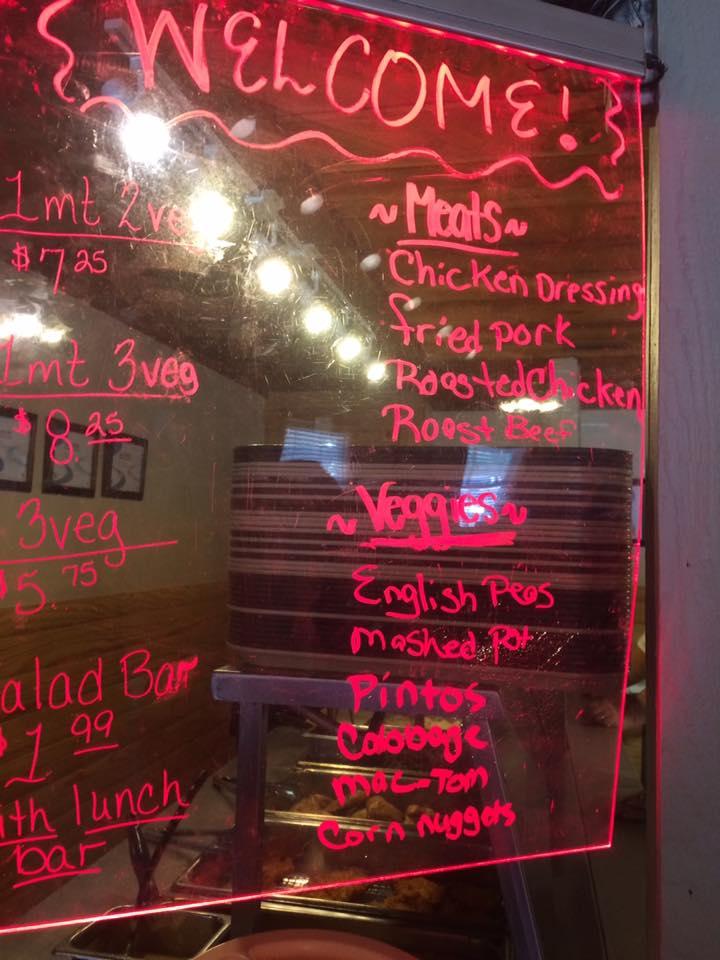 WELCOME!
1mt 2ve
$7.25
1mt 3veg
$8.25
3veg
$5.75
alad Bar
$1.99
ith lunch
bar
~Meats~
Chicken Dressing
fried pork
Roasted Chicken
Roast Beef
~Veggies~
English Peas
mashed Pot
Pintos
Cabbage
mac-Tom
Corn nuggets